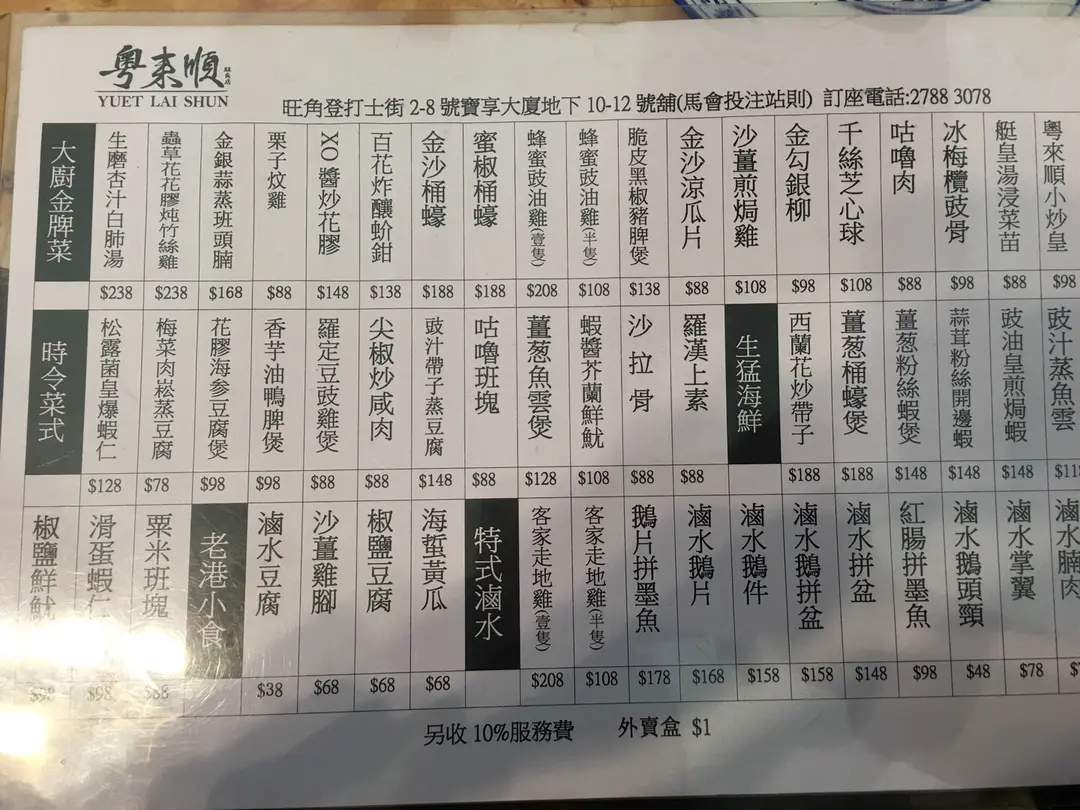 粤来順
旺角店
YUET LAI SHUN
旺角登打士街 2-8 號寶享大廈地下 10-12 號舖(馬會投注站則) 訂座電話:2788 3078
大廚金牌菜
生磨杏汁白肺湯 $238
蟲草花花膠炖竹絲雞 $238
金銀蒜蒸班頭腩 $168
栗子炆雞 $88
XO 醬炒花膠 $148
百花炸釀蚧鉗 $138
金沙桶蠔 $188
蜜椒桶蠔 $188
蜂蜜豉油雞(壹隻) $208
蜂蜜豉油雞(半隻) $108
脆皮黑椒豬脾煲 $138
金沙涼瓜片 $88
沙薑煎焗雞 $108
金勾銀柳 $98
千絲芝心球 $108
咕嚕肉 $88
冰梅欖豉骨 $98
艇皇湯浸菜苗 $88
粤來順小炒皇 $98
時令菜式
松露菌皇爆蝦仁 $128
梅菜肉崧蒸豆腐 $78
花膠海參豆腐煲 $98
香芋油鴨脾煲 $98
羅定豆豉雞煲 $88
尖椒炒咸肉 $88
豉汁帶子蒸豆腐 $148
咕嚕班塊 $88
薑葱魚雲煲 $128
蝦醬芥蘭鮮魷 $108
沙拉骨 $88
羅漢上素 $88
生猛海鮮
西蘭花炒帶子 $188
薑葱桶蠔煲 $188
薑葱粉絲蝦煲 $148
蒜茸粉絲開邊蝦 $148
豉油皇煎焗蝦 $148
豉汁蒸魚雲
椒鹽鮮魷 $98
滑蛋蝦仁 $98
粟米班塊 $88
老港小食
滷水豆腐 $38
沙薑雞腳 $68
椒鹽豆腐 $68
海蜇黃瓜 $68
特式滷水
客家走地雞(壹隻) $208
客家走地雞(半隻) $108
鵝片拼墨魚 $178
滷水鵝片 $168
滷水鵝件 $158
滷水鵝拼盆 $158
滷水拼盆 $148
紅腸拼墨魚 $98
滷水鵝頭頸 $48
滷水掌翼 $78
滷水腩肉
另收 10%服務費 外賣盒 $1